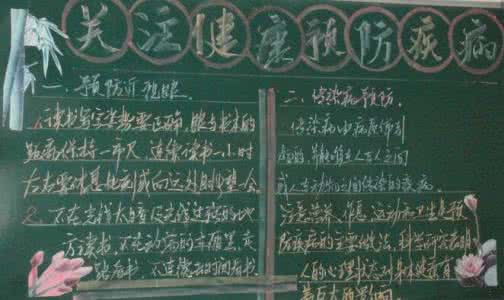 关注健康预防疾病
一、预防近视眼
1、读书写字姿势要正确，眼与书本的
距离保持一市尺，连续读书一小时
左右要休息片刻或向远处眺望一会
2、不在光线太暗或光线过强的地
方读书，不在动荡的车厢里
看书，不连续长时间看书
二、传染病预防
传染病由病原体引
起的，能在人与人之间
或人与动物之间传染的疾病
注意营养、休息、运动和卫生是预
防疾病的主要做法，科学研究表明
人的心理状态对身体健康有
着巨大的影响